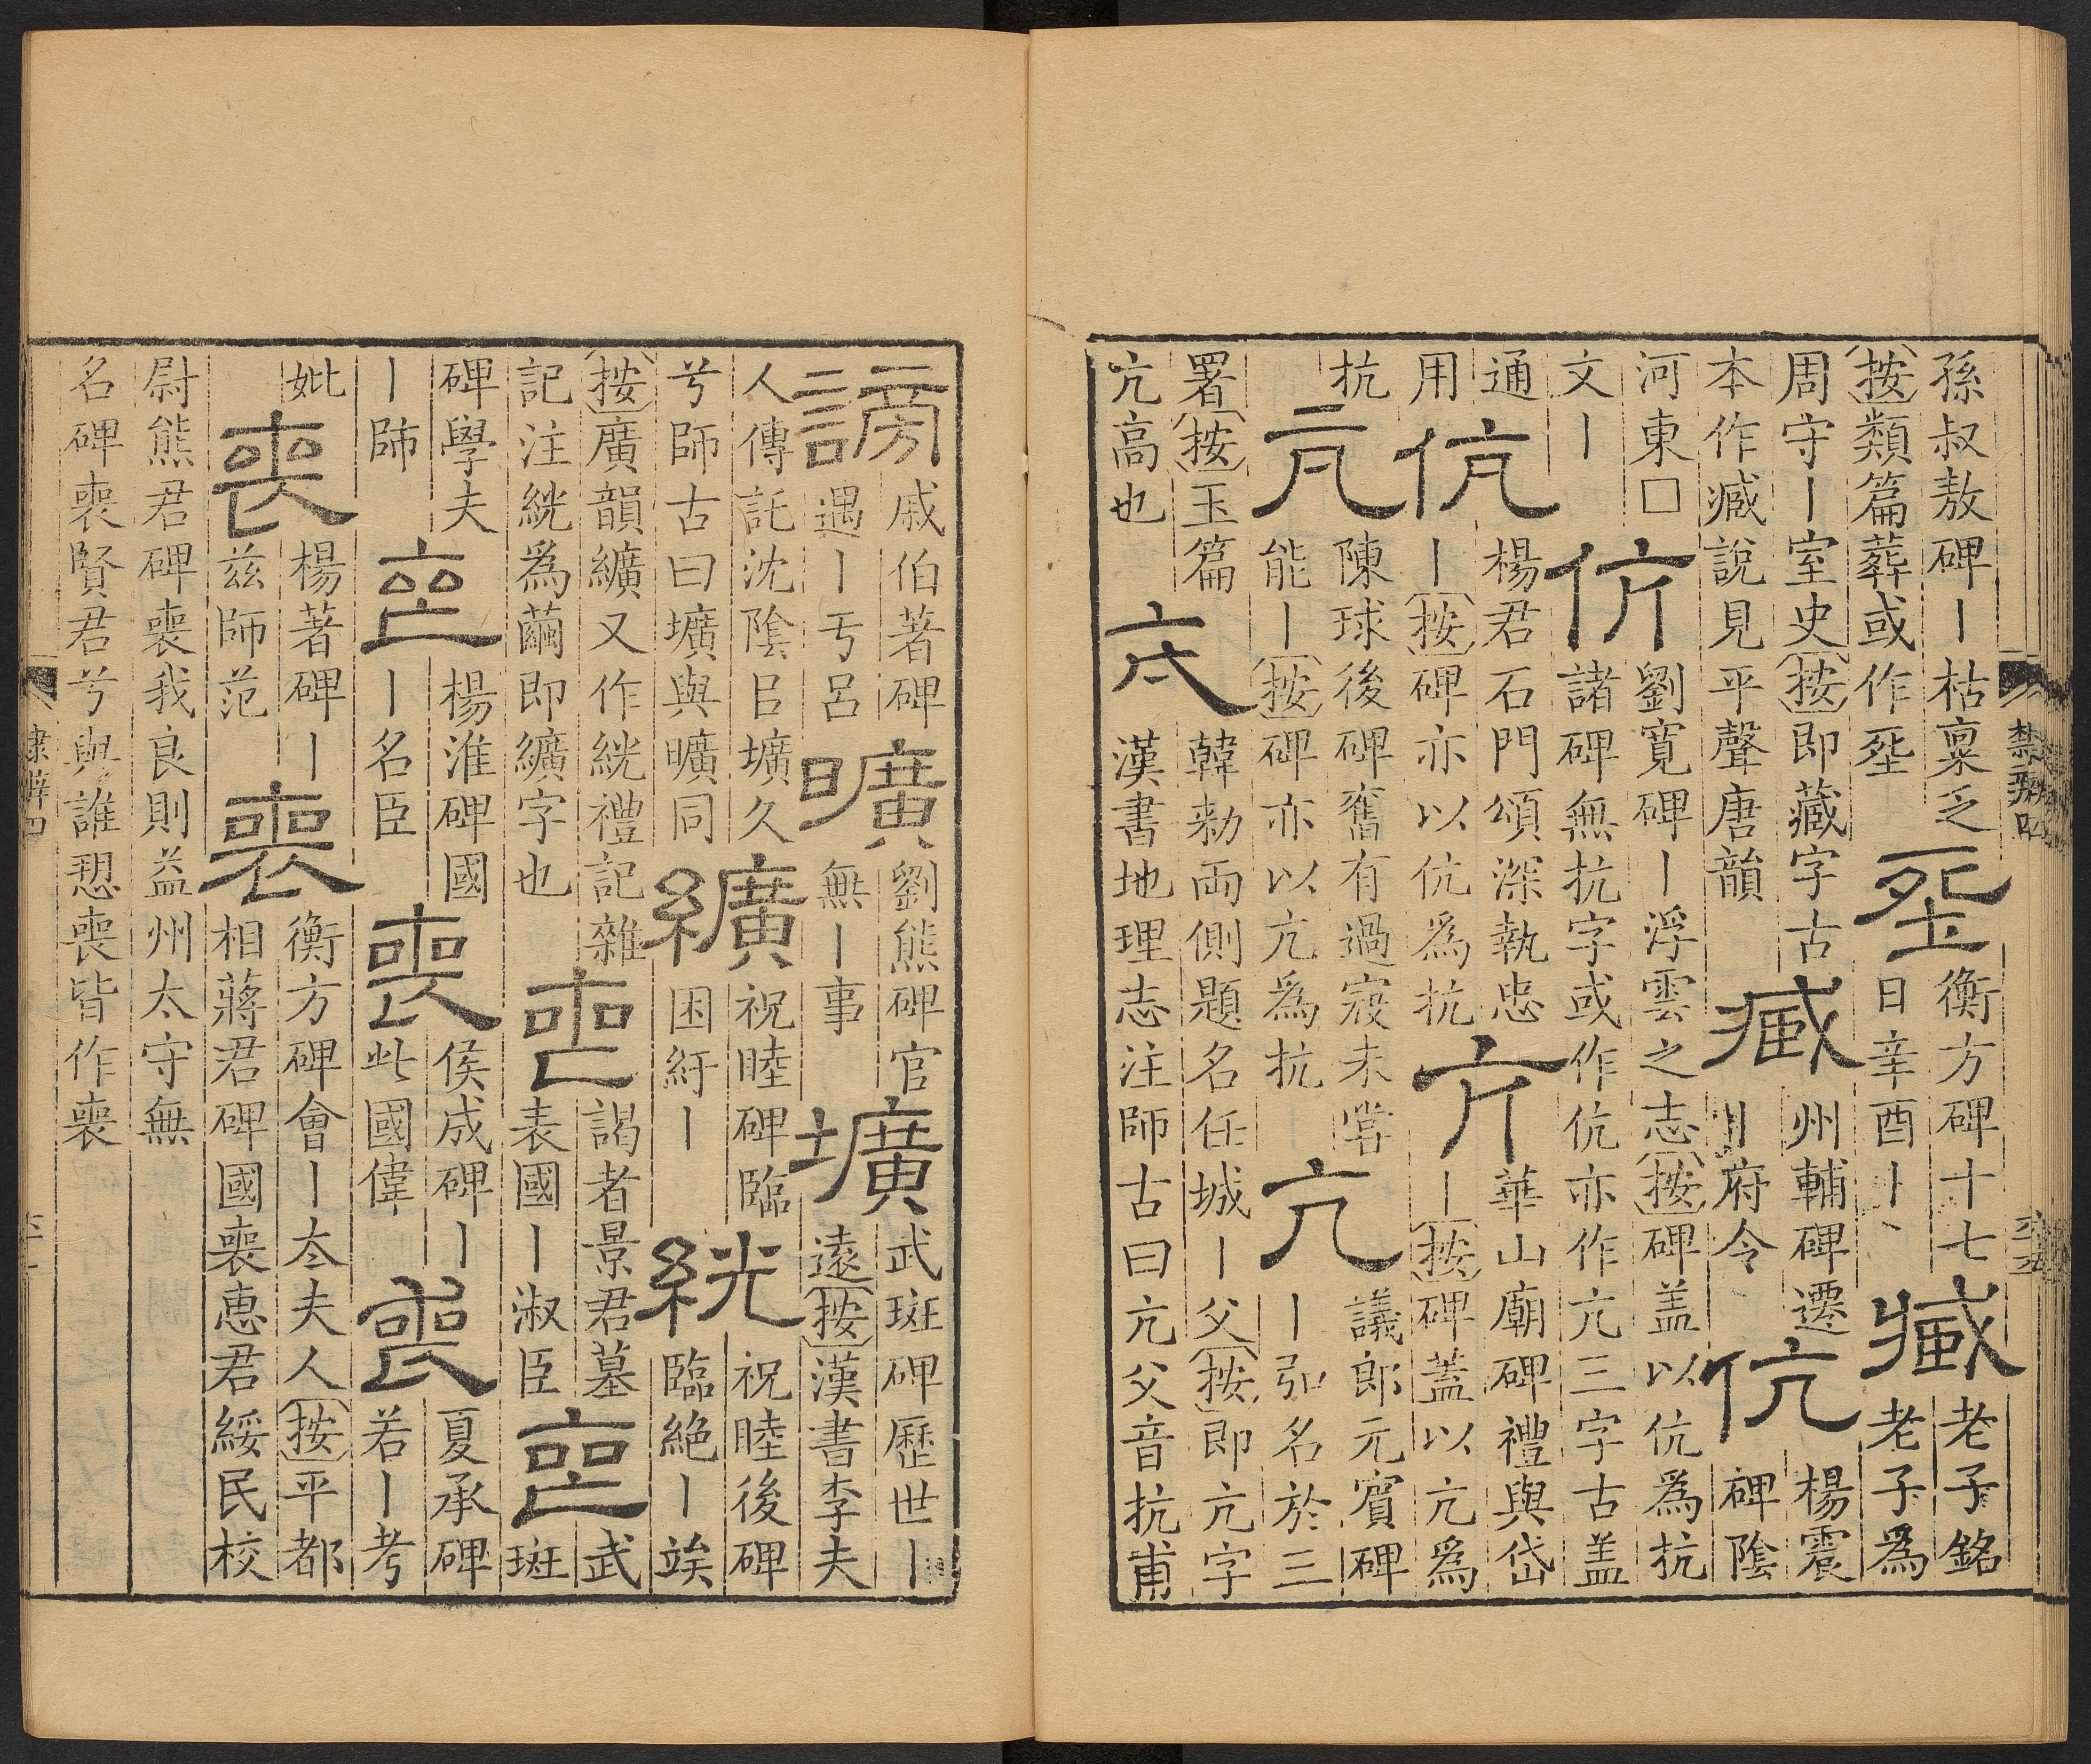 孫叔敖碑丨枯稟乏
按類篇葬或作坙
坙
衡方碑十七
日辛酉丨
臧
老子銘
老子為
周守丨室史按即藏字古
本作臧說見平聲唐韻
臧
州輔碑遷
丨府令
伉
楊震
碑陰
河東□
文丨
伉
劉寬碑丨浮雲之志按碑盖以伉為抗
諸碑無抗字或作伉亦作亢三字古盖
通
用
伉
楊君石門頌深執忠
丨按碑亦以伉為抗
亢
華山廟碑禮與岱
丨按碑蓋以亢為
抗
亢
陳球後碑奮有過㝡未嘗
能丨按碑亦以亢為抗
亢
議郎元賓碑
丨弘名於三
署按玉篇
亢高也
亢
韓勑両側題名任城丨父按即亢字
漢書地理志注師古曰亢父音抗甫
謗
戚伯著碑
遇丨丂呂
曠
劉熊碑官
無丨事
壙
武斑碑歷世丨
遠按漢書李夫
人傳託沈陰㠯壙久
兮師古曰壙與曠同
纊
祝睦碑臨
困紆丨
絖
祝睦後碑
臨絶丨竢
按廣韻纊又作絖禮記雜
記注絖為繭即纊字也
喪
謁者景君墓
表國丨淑臣
喪
武
斑
碑學夫
丨師
喪
楊淮碑國
丨名臣
喪
侯成碑丨
此國偉
喪
夏承碑
若丨考
妣
喪
楊著碑丨
兹師范
喪
衡方碑會丨夳夫人按平都
相蔣君碑國喪惠君綏民校
尉熊君碑喪我良則益州太守無
名碑喪賢君兮與誰愬喪皆作喪
隸辨四